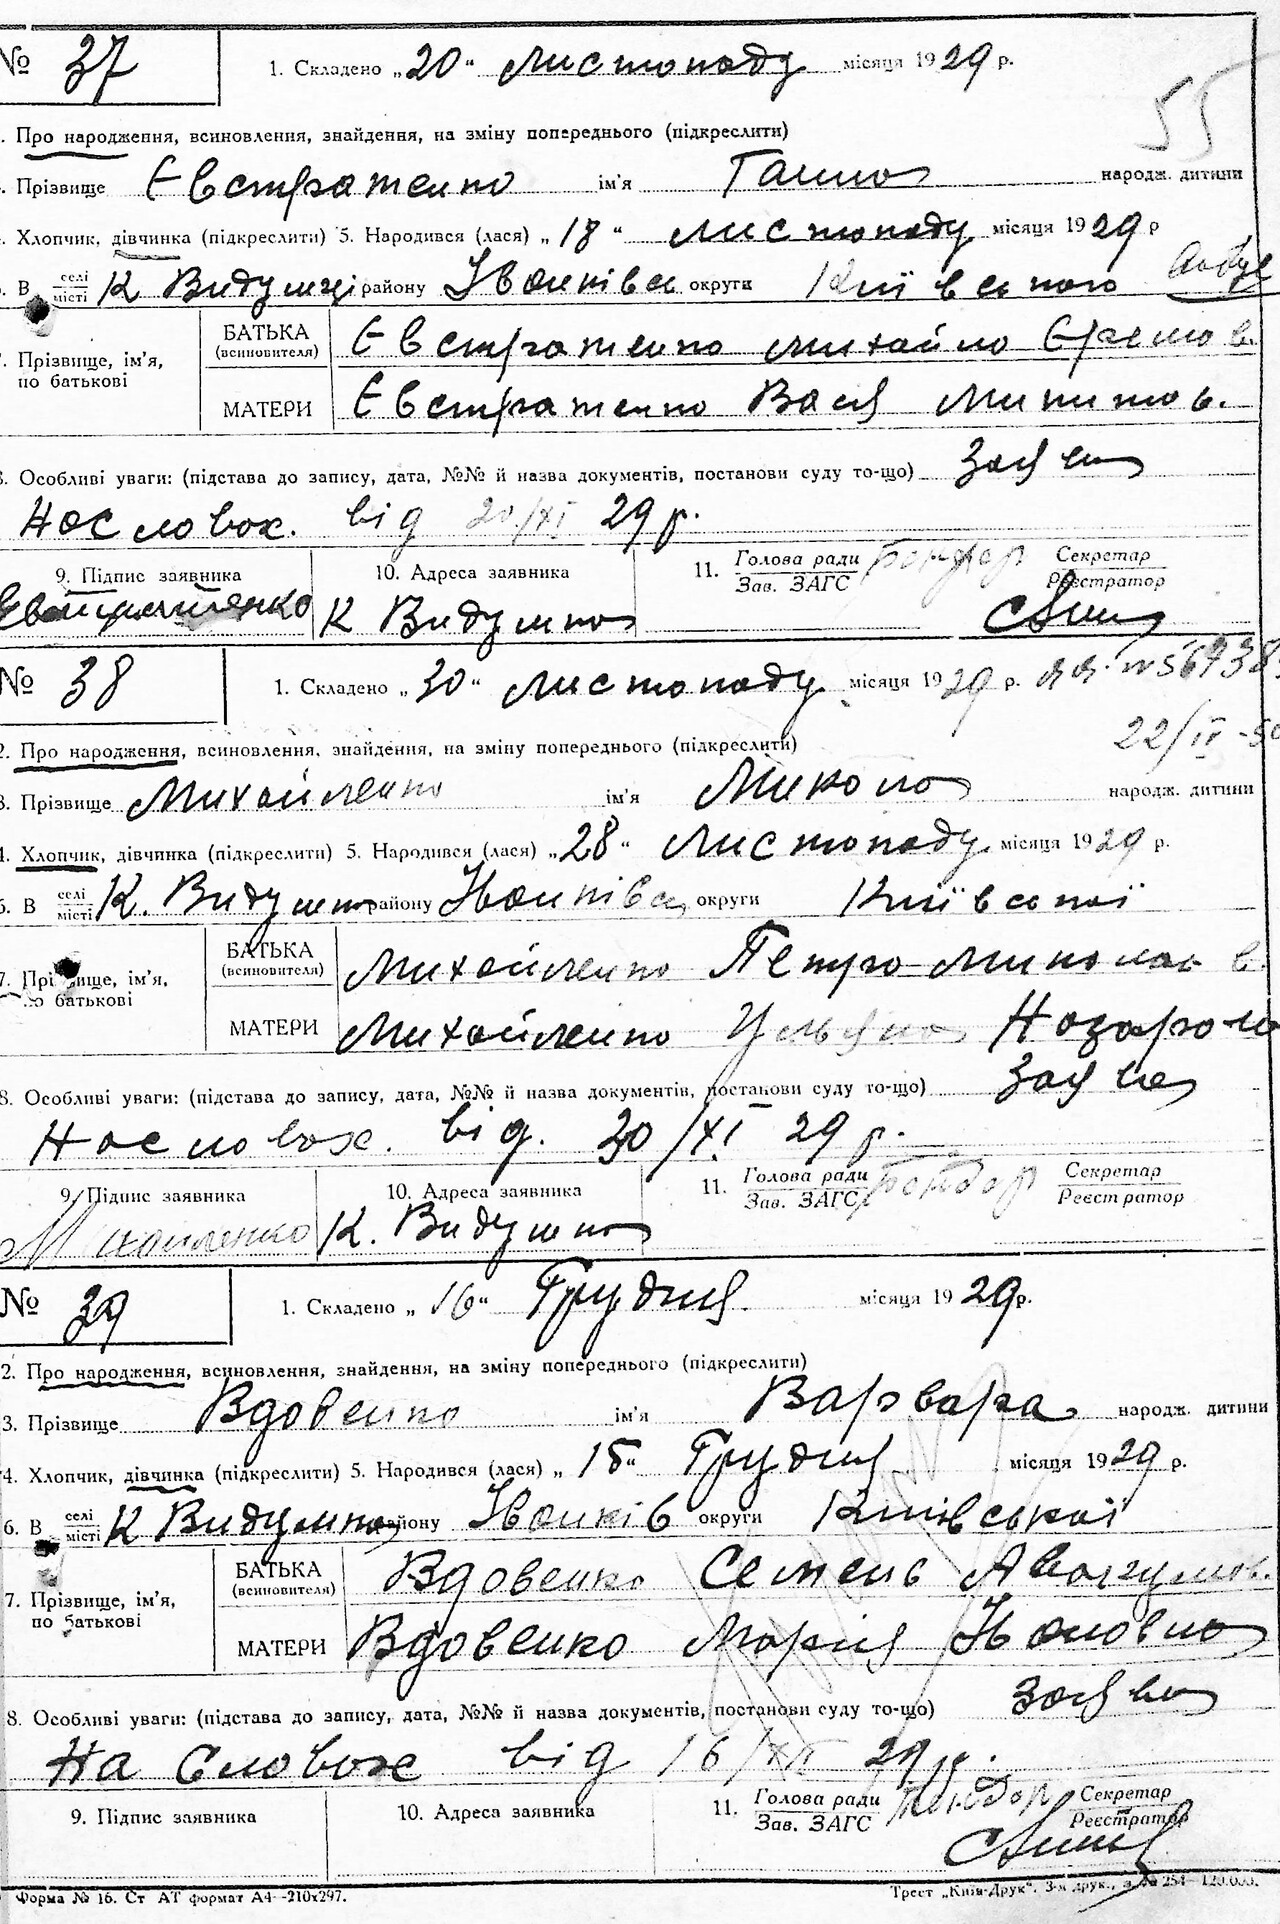 № 37 1. Складено „20“ Листопаду місяця 1929 р.
55
. Про народження, всиновлення, знайдення, на зміну попереднього (підкреслити)
. Прізвище Євстратенко ім'я Ганна народж. дитини
. Хлопчик, дівчинка (підкреслити) 5. Народився (лася) „18“ Листопаду місяця 1929 р
. В селі місті К Видумці району Іванківськ округи Київського
7. Прізвище, ім'я, по батькові
БАТЬКА (всиновителя) Євстратенко Михайло Єремов.
МАТЕРИ Євстратенко Васа Микитов.
8. Особливі уваги: (підстава до запису, дата, №№ й назва документів, постанови суду то-що) Заява
На словах. від 20/XI 29 р.
9. Підпис заявника 10. Адреса заявника 11. Голова ради Зав. ЗАГС Бондар Секретар Реєстратор
Євстратенко К Видумка
№ 38 1. Складено „30“ Листопаду місяця 1929 р.
22/IV-50
2. Про народження, всиновлення, знайдення, на зміну попереднього (підкреслити)
3. Прізвище Михайленко ім'я Микола народж. дитини
4. Хлопчик, дівчинка (підкреслити) 5. Народився (лася) „28“ Листопаду місяця 1929 р.
6. В селі місті К. Видумка району Іванківськ округи Київської
7. Прізвище, ім'я, по батькові
БАТЬКА (всиновителя) Михайленко Петро Миколаєв.
МАТЕРИ Михайленко Ульяна Назаров
8. Особливі уваги: (підстава до запису, дата, №№ й назва документів, постанови суду то-що) Заява
На словах. від. 30/XI 29 р.
9. Підпис заявника 10. Адреса заявника 11. Голова ради Зав. ЗАГС Бондар Секретар Реєстратор
Михайленко К. Видумка
№ 39 1. Складено „16“ Грудня місяця 1929 р.
2. Про народження, всиновлення, знайдення, на зміну попереднього (підкреслити)
3. Прізвище Вдовенко ім'я Варвара народж. дитини
4. Хлопчик, дівчинка (підкреслити) 5. Народився (лася) „15“ Грудня місяця 1929 р.
6. В селі місті К Видумка району Іванків округи Київської
7. Прізвище, ім'я, по батькові
БАТЬКА (всиновителя) Вдовенко Семень Авакумов.
МАТЕРИ Вдовенко Марія Івановна
8. Особливі уваги: (підстава до запису, дата, №№ й назва документів, постанови суду то-що) Заява
На Словах від 16/XII 29 р.
9. Підпис заявника 10. Адреса заявника 11. Голова ради Зав. ЗАГС Бондар Секретар Реєстратор
Форма № 16. Ст АТ формат А4—210x297. Трест „Київ-Друк“. 3-я друк., з. № 254—120.000.